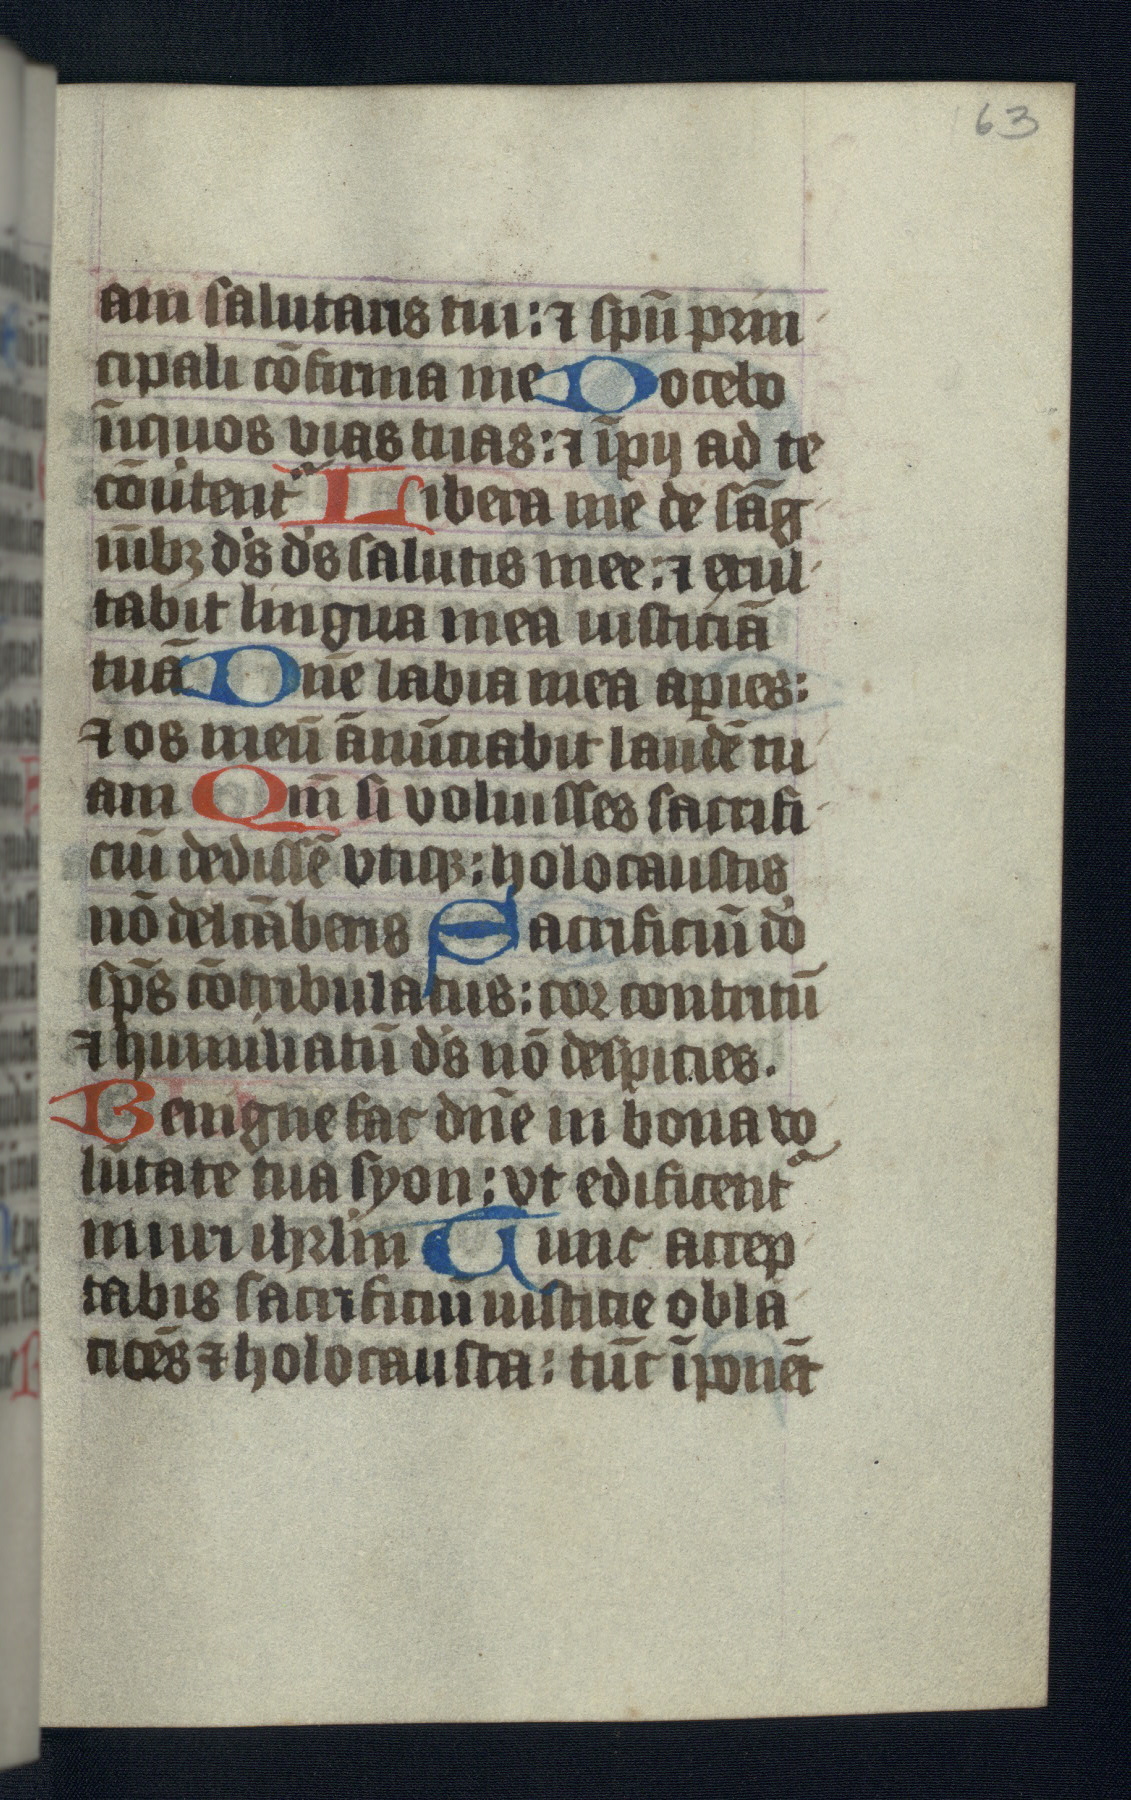 63
am salutaris tui: ⁊ spū prin
cipali cōfirma me Docebo
īiquos vias tuas: ⁊ īpij ad te
cōūtent᷑ Libera me de sāg
uībꝫ ds̄ ds̄ salutis mee: ⁊ exul
tabit lingua mea iusticiā
tuā Dn̄e labia mea apies:
⁊ os meū ānūciabit laudē tu
am Qm̄ si voluisses sacrifi
ciū dedissē vtiqꝫ: holocaustis
nō delc̄āberis Sacrificiū do
sp̄s cōtribulatus: cor contritū
⁊ humiliatū ds̄ nō despicies.
Benigne fac dn̄e in bona vo
lūtate tua syon: vt edificent᷑
muri ihrl̄m Tunc accep
tabis sacrificiū iusticie obla
ticēs ⁊ holocausta: tūc īponēt